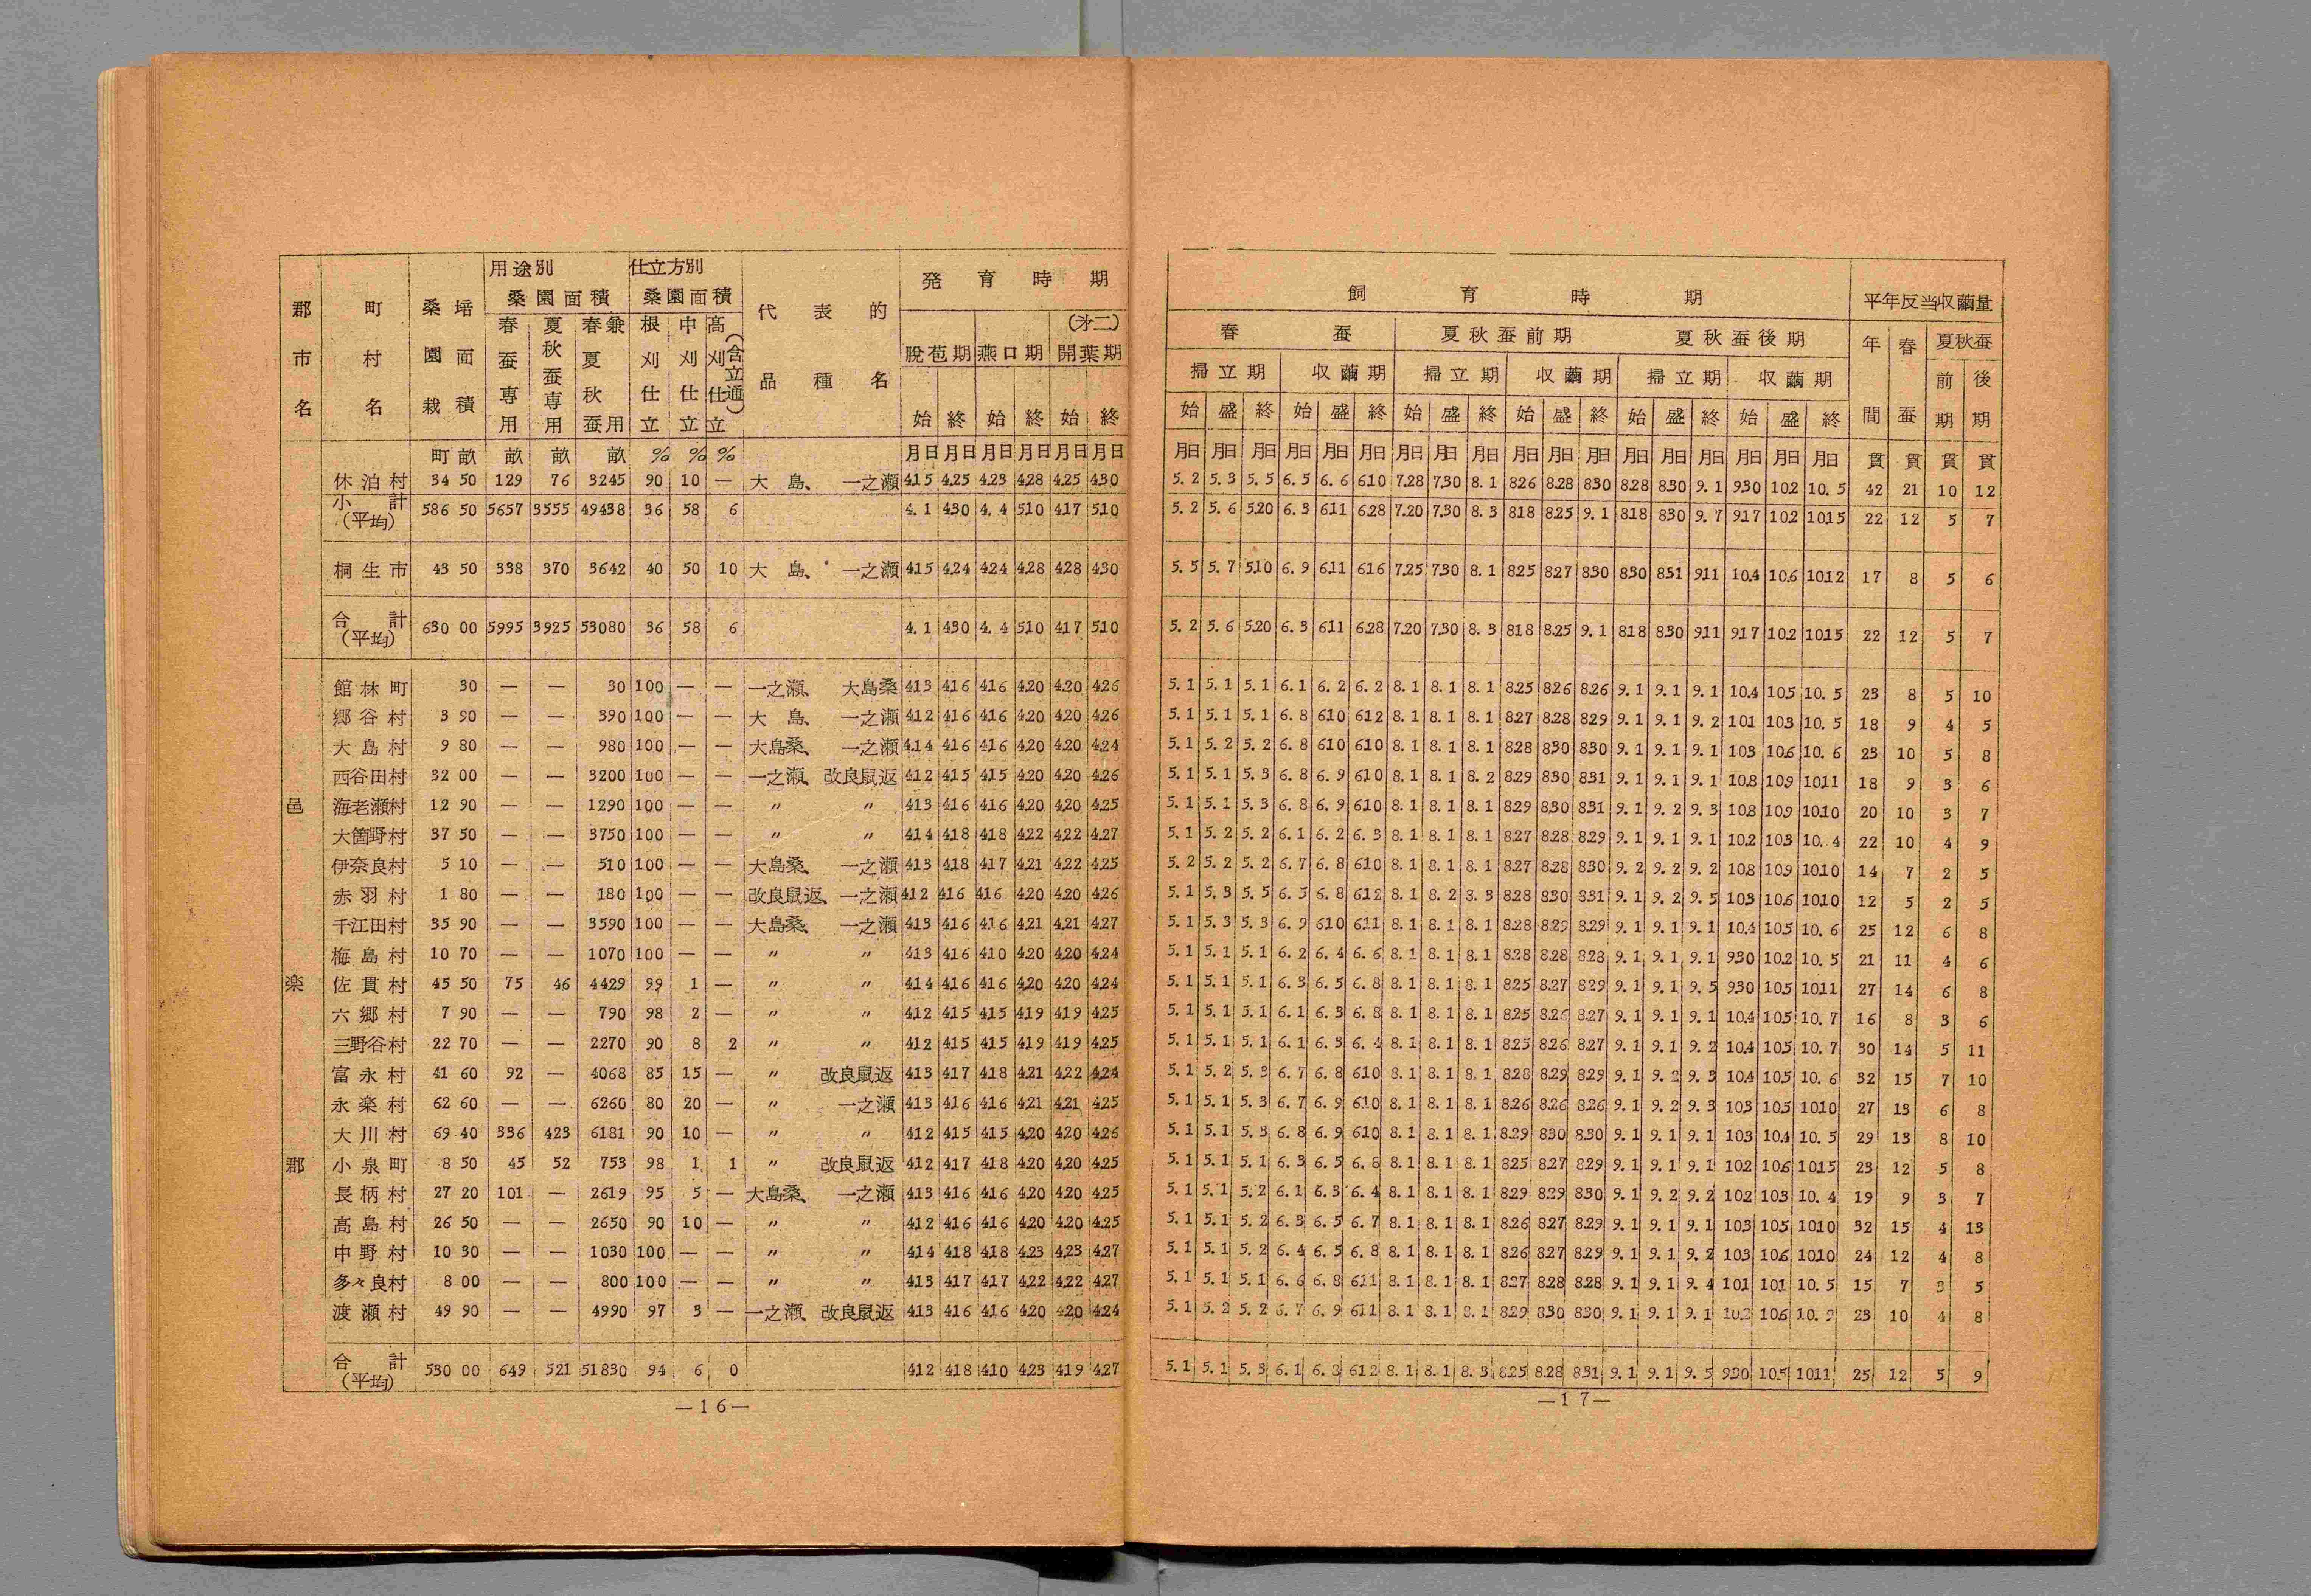 郡市名 町村名 桑園栽培面積 用途別桑園面積 仕立方別桑園面積 代表的品種名 発育時期
春蚕専用 夏秋蚕専用 春夏秋蚕兼用 根刈仕立 中刈仕立 高刈仕立(含立通) 脱苞期 燕口期 (才二)開葉期
始 終 始 終 始 終
町畝 畝 畝 畝 % % % 月日 月日 月日 月日 月日 月日
休泊村 34 50 129 76 3245 90 10 — 大島、 一之瀬 415 4.25 4.23 4.28 4.25 4.30
小計(平均) 586 50 5657 3555 49438 36 58 6 4.1 430 4.4 510 417 510
桐生市 43 50 338 370 3642 40 50 10 大島、 一之瀬 415 4.24 424 4.28 4.28 4.30
合計(平均) 630 00 5995 3925 53080 36 58 6 4.1 430 4.4 510 417 510
邑楽郡
館林町 30 — — 30 100 — — 一之瀬、 大島桑 413 416 416 4.20 4.20 4.26
郷谷村 3 90 — — 390 100 — — 大島、 一之瀬 412 416 416 4.20 4.20 4.26
大島村 9 80 — — 980 100 — — 大島桑、 一之瀬 4.14 416 416 4.20 4.20 4.24
西谷田村 32 00 — — 3200 100 — — 一之瀬、 改良鼠返 412 415 415 4.20 4.20 4.26
海老瀬村 12 90 — — 1290 100 — — 〃 〃 413 416 416 4.20 4.20 4.25
大箇野村 37 50 — — 3750 100 — — 〃 〃 414 418 418 4.22 4.22 4.27
伊奈良村 5 10 — — 510 100 — — 大島桑、 一之瀬 413 418 417 4.21 4.22 4.25
赤羽村 1 80 — — 180 100 — — 改良鼠返、 一之瀬 412 416 416 4.20 4.20 4.26
千江田村 35 90 — — 3590 100 — — 大島桑、 一之瀬 413 416 416 4.21 4.21 4.27
梅島村 10 70 — — 1070 100 — — 〃 〃 413 416 410 4.20 4.20 4.24
佐貫村 45 50 75 46 4429 99 1 — 〃 〃 414 416 416 4.20 4.20 4.24
六郷村 7 90 — — 790 98 2 — 〃 〃 412 415 415 419 419 4.25
三野谷村 22 70 — — 2270 90 8 2 〃 〃 412 415 415 419 419 4.25
富永村 41 60 92 — 4068 85 15 — 〃 改良鼠返 413 417 418 4.21 4.22 4.24
永楽村 62 60 — — 6260 80 20 — 〃 一之瀬 413 416 416 4.21 4.21 4.25
大川村 69 40 336 423 6181 90 10 — 〃 〃 412 415 415 4.20 4.20 4.26
小泉町 8 50 45 52 753 98 1 1 〃 改良鼠返 412 417 418 4.20 4.20 4.25
長柄村 27 20 101 — 2619 95 5 — 大島桑、 一之瀬 413 416 416 4.20 4.20 4.25
高島村 26 50 — — 2650 90 10 — 〃 〃 412 416 416 4.20 4.20 4.25
中野村 10 30 — — 1030 100 — — 〃 〃 414 418 418 4.23 4.23 4.27
多々良村 8 00 — — 800 100 — — 〃 〃 413 417 417 4.22 4.22 4.27
渡瀬村 49 90 — — 4990 97 3 — 一之瀬、 改良鼠返 413 416 416 4.20 4.20 4.24
合計(平均) 530 00 649 521 51830 94 6 0 412 418 410 4.23 419 4.27
—16—
飼育時期 平年反当収繭量
春蚕 夏秋蚕前期 夏秋蚕後期 年間 春蚕 夏秋蚕
掃立期 収繭期 掃立期 収繭期 掃立期 収繭期 前期 後期
始 盛 終 始 盛 終 始 盛 終 始 盛 終 始 盛 終 始 盛 終
月日 月日 月日 月日 月日 月日 月日 月日 月日 月日 月日 月日 月日 月日 月日 月日 月日 月日 貫 貫 貫 貫
5.2 5.3 5.5 6.5 6.6 610 7.28 7.30 8.1 826 8.28 830 8.28 8.30 9.1 9.30 10.2 10.5 42 21 10 12
5.2 5.6 5.20 6.3 611 6.28 7.20 7.30 8.3 818 8.25 9.1 818 8.30 9.7 917 10.2 1015 22 12 5 7
5.5 5.7 510 6.9 611 616 7.25 7.30 8.1 825 827 830 830 831 911 10.4 10.6 1012 17 8 5 6
5.2 5.6 5.20 6.3 611 6.28 7.20 7.30 8.3 818 8.25 9.1 818 8.30 911 917 10.2 1015 22 12 5 7
5.1 5.1 5.1 6.1 6.2 6.2 8.1 8.1 8.1 825 826 826 9.1 9.1 9.1 10.4 10.5 10.5 23 8 5 10
5.1 5.1 5.1 6.8 610 612 8.1 8.1 8.1 827 828 829 9.1 9.1 9.2 101 103 10.5 18 9 4 5
5.1 5.2 5.2 6.8 610 610 8.1 8.1 8.1 828 830 830 9.1 9.1 9.1 103 10.6 10.6 23 10 5 8
5.1 5.1 5.3 6.8 6.9 610 8.1 8.1 8.2 829 830 831 9.1 9.1 9.1 10.8 10.9 1011 18 9 3 6
5.1 5.1 5.3 6.8 6.9 610 8.1 8.1 8.1 829 830 831 9.1 9.2 9.3 10.8 10.9 1010 20 10 3 7
5.1 5.2 5.2 6.1 6.2 6.3 8.1 8.1 8.1 827 828 829 9.1 9.1 9.1 10.2 10.3 10.4 22 10 4 9
5.2 5.2 5.2 6.7 6.8 610 8.1 8.1 8.1 827 828 830 9.2 9.2 9.2 10.8 10.9 1010 14 7 2 5
5.1 5.3 5.5 6.5 6.8 612 8.1 8.2 8.3 828 830 831 9.1 9.2 9.5 103 10.6 1010 12 5 2 5
5.1 5.3 5.3 6.9 610 611 8.1 8.1 8.1 828 829 829 9.1 9.1 9.1 10.4 10.5 10.6 25 12 6 8
5.1 5.1 5.1 6.2 6.4 6.6 8.1 8.1 8.1 828 828 828 9.1 9.1 9.1 930 10.2 10.5 21 11 4 6
5.1 5.1 5.1 6.3 6.5 6.8 8.1 8.1 8.1 825 827 829 9.1 9.1 9.5 930 105 1011 27 14 6 8
5.1 5.1 5.1 6.1 6.3 6.8 8.1 8.1 8.1 825 826 827 9.1 9.1 9.1 10.4 105 10.7 16 8 3 6
5.1 5.1 5.1 6.1 6.3 6.4 8.1 8.1 8.1 825 826 827 9.1 9.1 9.2 10.4 105 10.7 30 14 5 11
5.1 5.2 5.3 6.7 6.8 610 8.1 8.1 8.1 828 829 829 9.1 9.2 9.3 10.4 105 10.6 32 15 7 10
5.1 5.1 5.3 6.7 6.9 610 8.1 8.1 8.1 826 826 826 9.1 9.2 9.3 103 105 1010 27 13 6 8
5.1 5.1 5.3 6.8 6.9 610 8.1 8.1 8.1 829 830 830 9.1 9.1 9.1 103 10.4 10.5 29 13 8 10
5.1 5.1 5.1 6.3 6.5 6.8 8.1 8.1 8.1 825 827 829 9.1 9.1 9.1 102 106 1015 23 12 5 8
5.1 5.1 5.2 6.1 6.3 6.4 8.1 8.1 8.1 829 829 830 9.1 9.2 9.2 102 103 10.4 19 9 3 7
5.1 5.1 5.2 6.3 6.5 6.7 8.1 8.1 8.1 826 827 829 9.1 9.1 9.1 103 105 1010 32 15 4 13
5.1 5.1 5.2 6.4 6.5 6.8 8.1 8.1 8.1 826 827 829 9.1 9.1 9.2 103 106 1010 24 12 4 8
5.1 5.1 5.1 6.6 6.8 611 8.1 8.1 8.1 827 828 828 9.1 9.1 9.4 101 101 10.5 15 7 3 5
5.1 5.2 5.2 6.7 6.9 611 8.1 8.1 8.1 829 830 830 9.1 9.1 9.1 10.2 106 10.9 23 10 4 8
5.1 5.1 5.3 6.1 6.3 612 8.1 8.1 8.3 825 828 831 9.1 9.1 9.5 930 10.5 1011 25 12 5 9
—17—